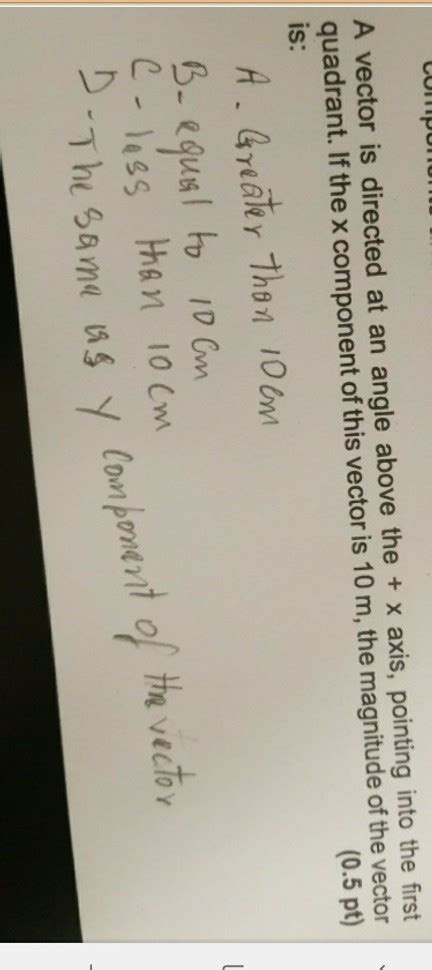 A vector is directed at an angle above the + x axis, pointing into the first
quadrant. If the x component of this vector is 10 m, the magnitude of the vector
is:
(0.5 pt)
A - Greater than 10 cm
B - equal to 10 cm
C - less than 10 cm
D - The same as Y component of the vector